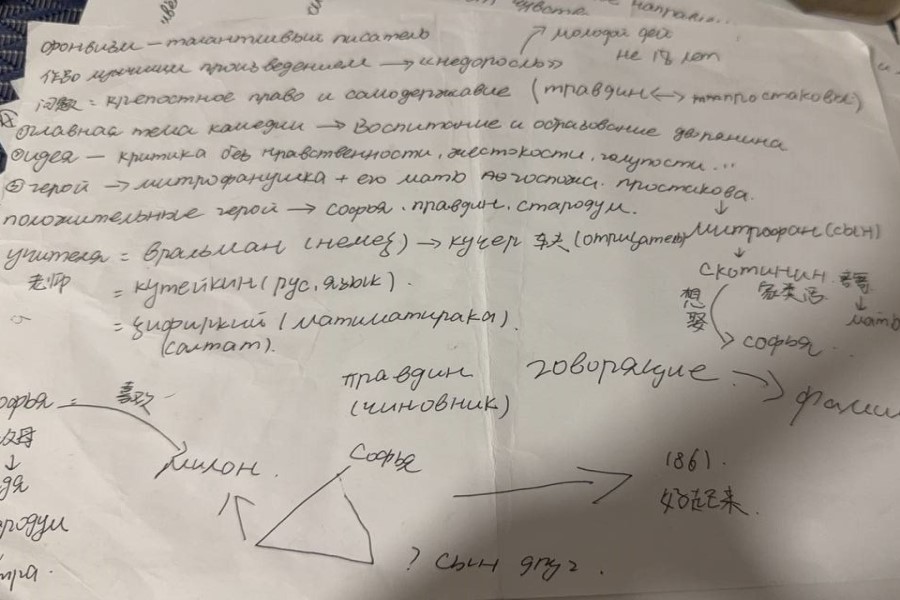 чувства
фонвизин – талантливый писатель
молодой
не 18 лет
произведением → «недоросль»
问题 = крепостное право и самодержавие (правдин ↔ простаковы)
главная тема камедии → Воспитание и образование дворянина
идея – критика без нравственности, жестокости, глупости...
герой → митрофанушка + его мать госпожа. простакова.
положительные герой → софья. правдин. стародум.
Митрофан (сын)
учителя = вральман (немец) → кучер 车夫 (отрицатель)
老师
= кутейкин (рус. язык).
скотинин. 哥哥
家关活
мать
想娶
софья
= цифиркий (матиматирака).
(салтат).
правдин
(чиновник)
говорящие →
софья = 喜欢
父母
милон.
софья
1861.
好起来.
? сын друг.